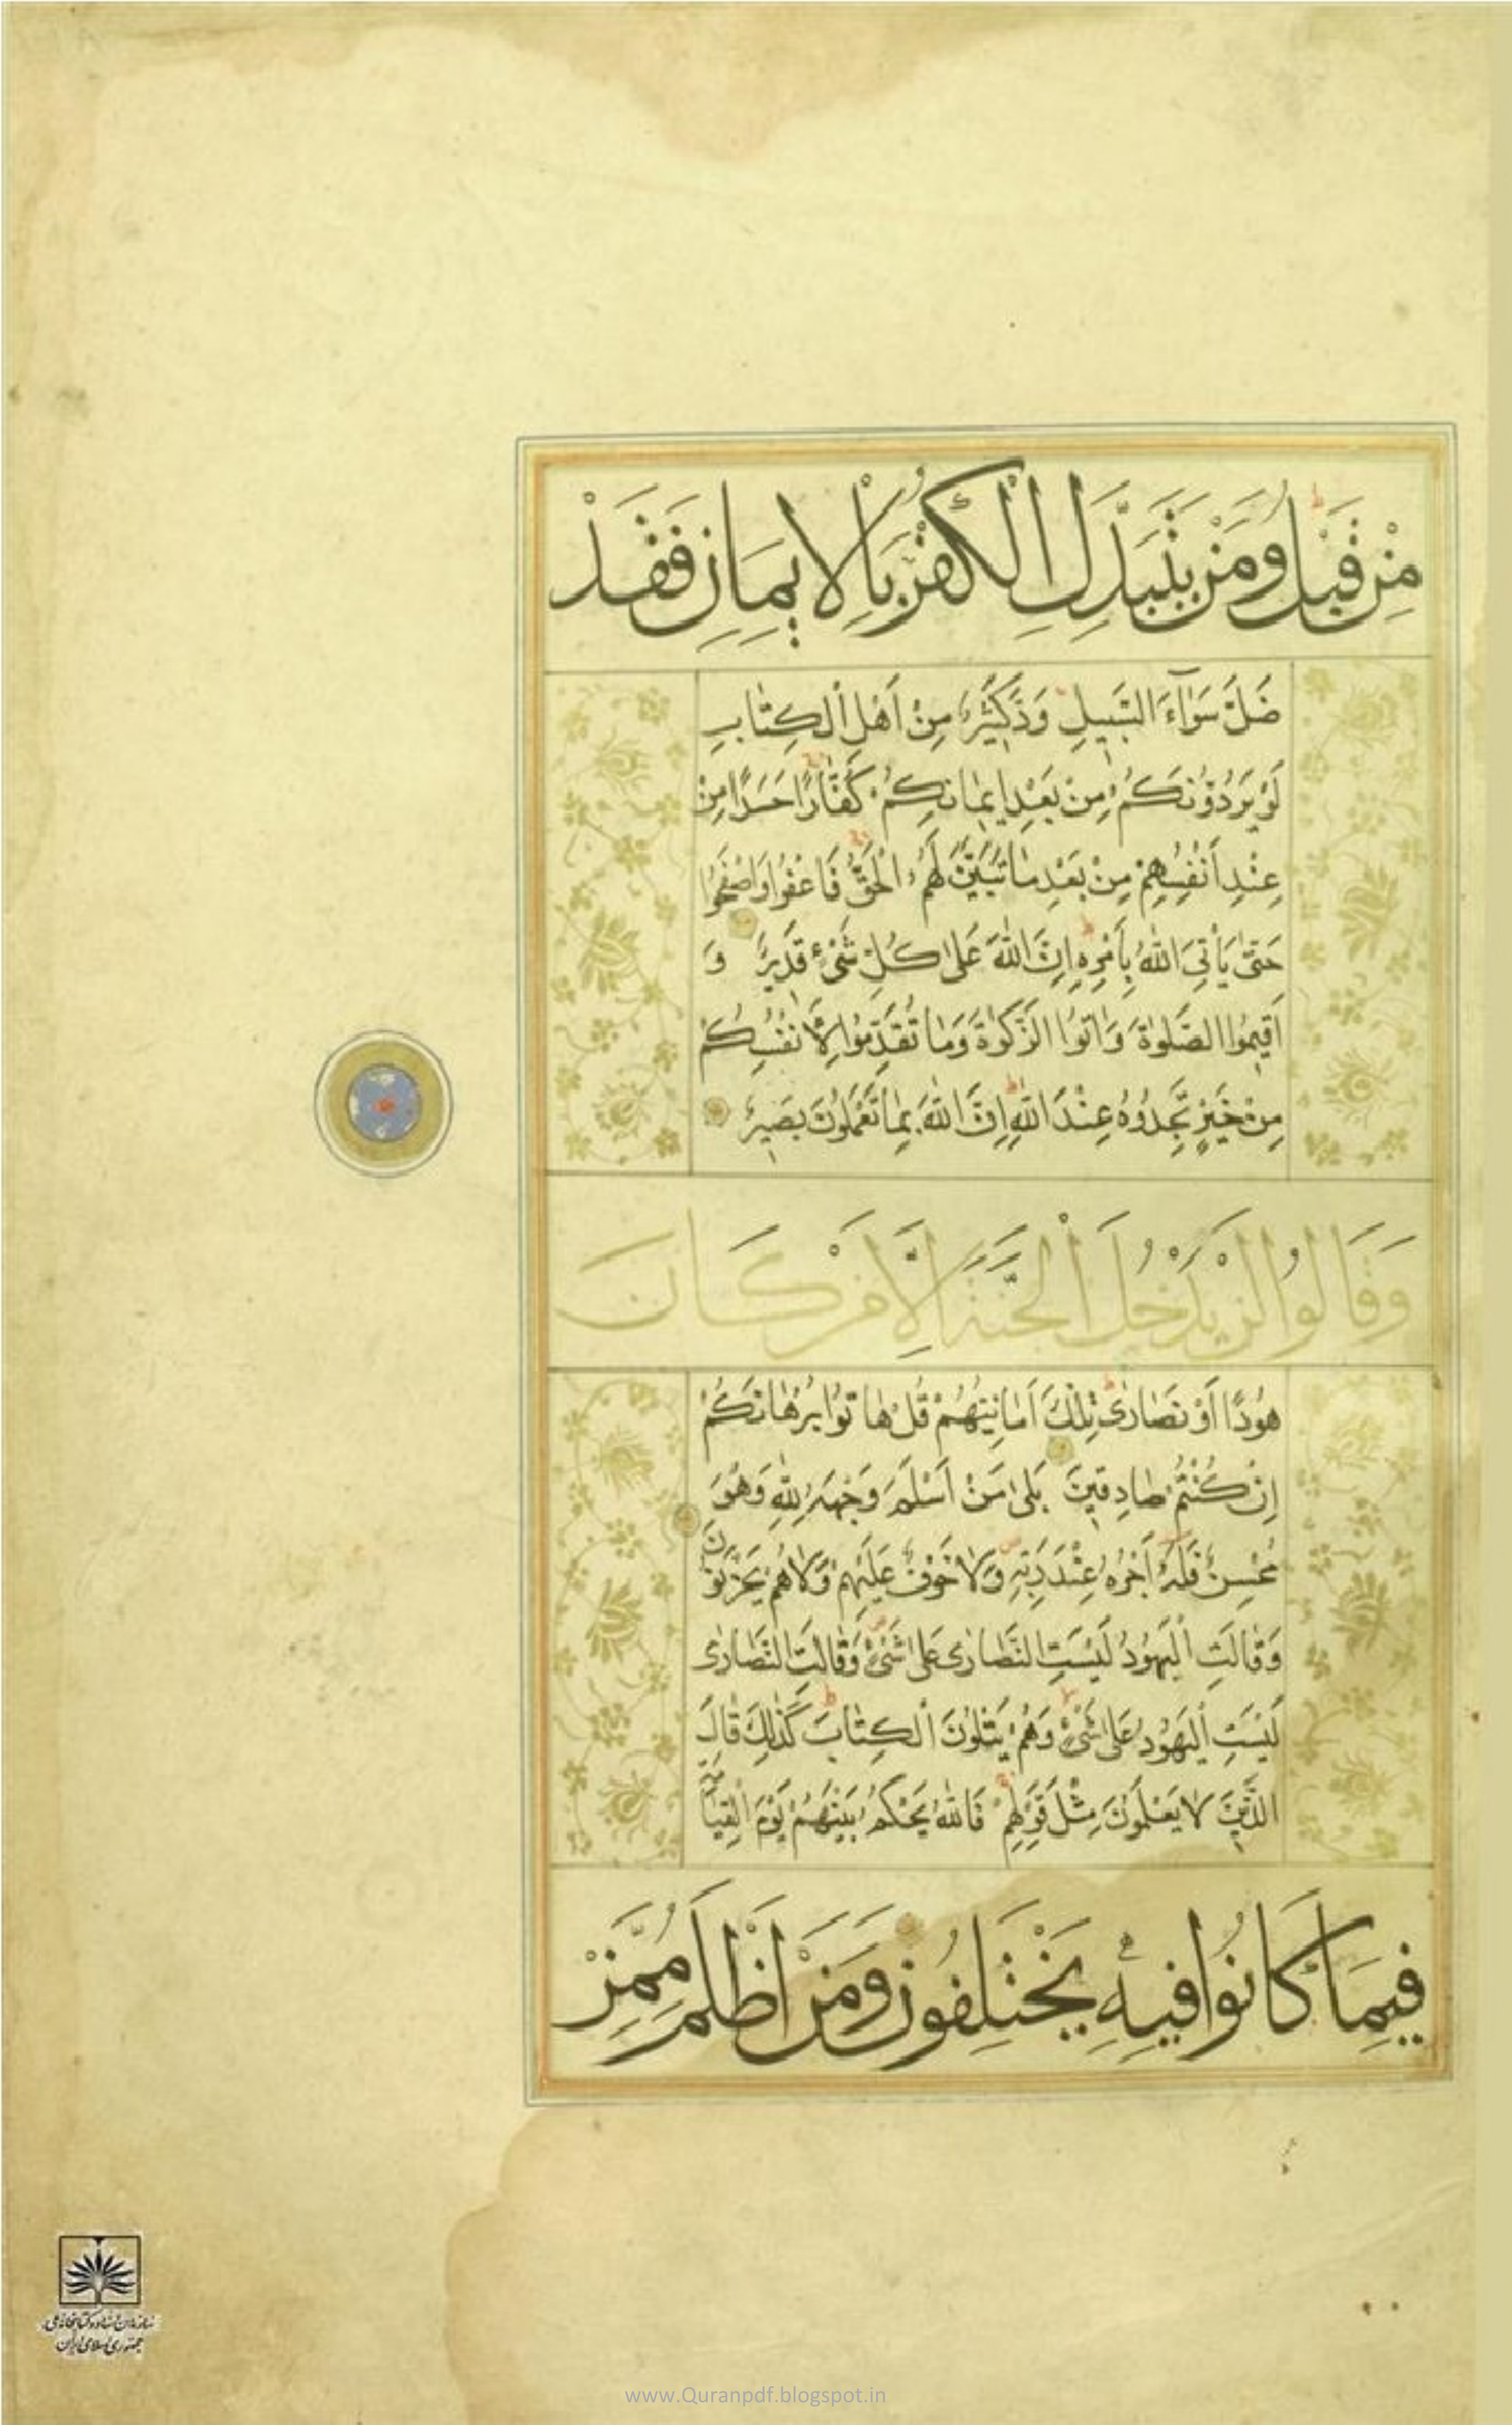 مِنْ قَبْلُ وَمَنْ يَتَبَدَّلِ الْكُفْرَ بِالْإِيمَانِ فَقَدْ
ضَلَّ سَوَآءَ السَّبِيلِ وَدَّ كَثِيرٌ مِنْ أَهْلِ الْكِتَابِ
لَوْ يَرُدُّونَكُمْ مِنْ بَعْدِ إِيمَانِكُمْ كُفَّارًا حَسَدًا مِنْ
عِنْدِ أَنْفُسِهِمْ مِنْ بَعْدِ مَا تَبَيَّنَ لَهُمُ الْحَقُّ فَاعْفُوا وَاصْفَحُوا
حَتَّى يَأْتِيَ اللَّهُ بِأَمْرِهِ إِنَّ اللَّهَ عَلَى كُلِّ شَيْءٍ قَدِيرٌ وَ
أَقِيمُوا الصَّلٰوةَ وَاٰتُوا الزَّكٰوةَ وَمَا تُقَدِّمُوا لِأَنْفُسِكُمْ
مِنْ خَيْرٍ تَجِدُوهُ عِنْدَ اللَّهِ إِنَّ اللَّهَ بِمَا تَعْمَلُونَ بَصِيرٌ
وَقَالُوا لَنْ يَدْخُلَ الْجَنَّةَ إِلَّا مَنْ كَانَ
هُودًا أَوْ نَصَارَى تِلْكَ أَمَانِيُّهُمْ قُلْ هَاتُوا بُرْهَانَكُمْ
إِنْ كُنْتُمْ صَادِقِينَ بَلَى مَنْ أَسْلَمَ وَجْهَهُ لِلَّهِ وَهُوَ
مُحْسِنٌ فَلَهُ أَجْرُهُ عِنْدَ رَبِّهِ وَلَا خَوْفٌ عَلَيْهِمْ وَلَا هُمْ يَحْزَنُونَ
وَقَالَتِ الْيَهُودُ لَيْسَتِ النَّصَارَى عَلَى شَيْءٍ وَقَالَتِ النَّصَارَى
لَيْسَتِ الْيَهُودُ عَلَى شَيْءٍ وَهُمْ يَتْلُونَ الْكِتَابَ كَذَلِكَ قَالَ
الَّذِينَ لَا يَعْلَمُونَ مِثْلَ قَوْلِهِمْ فَاللَّهُ يَحْكُمُ بَيْنَهُمْ يَوْمَ الْقِيَامَةِ
فِيمَا كَانُوا فِيهِ يَخْتَلِفُونَ وَمَنْ أَظْلَمُ مِمَّنْ
سازمان اسناد و کتابخانه ملی
جمهوری اسلامی ایران
www.Quranpdf.blogspot.in